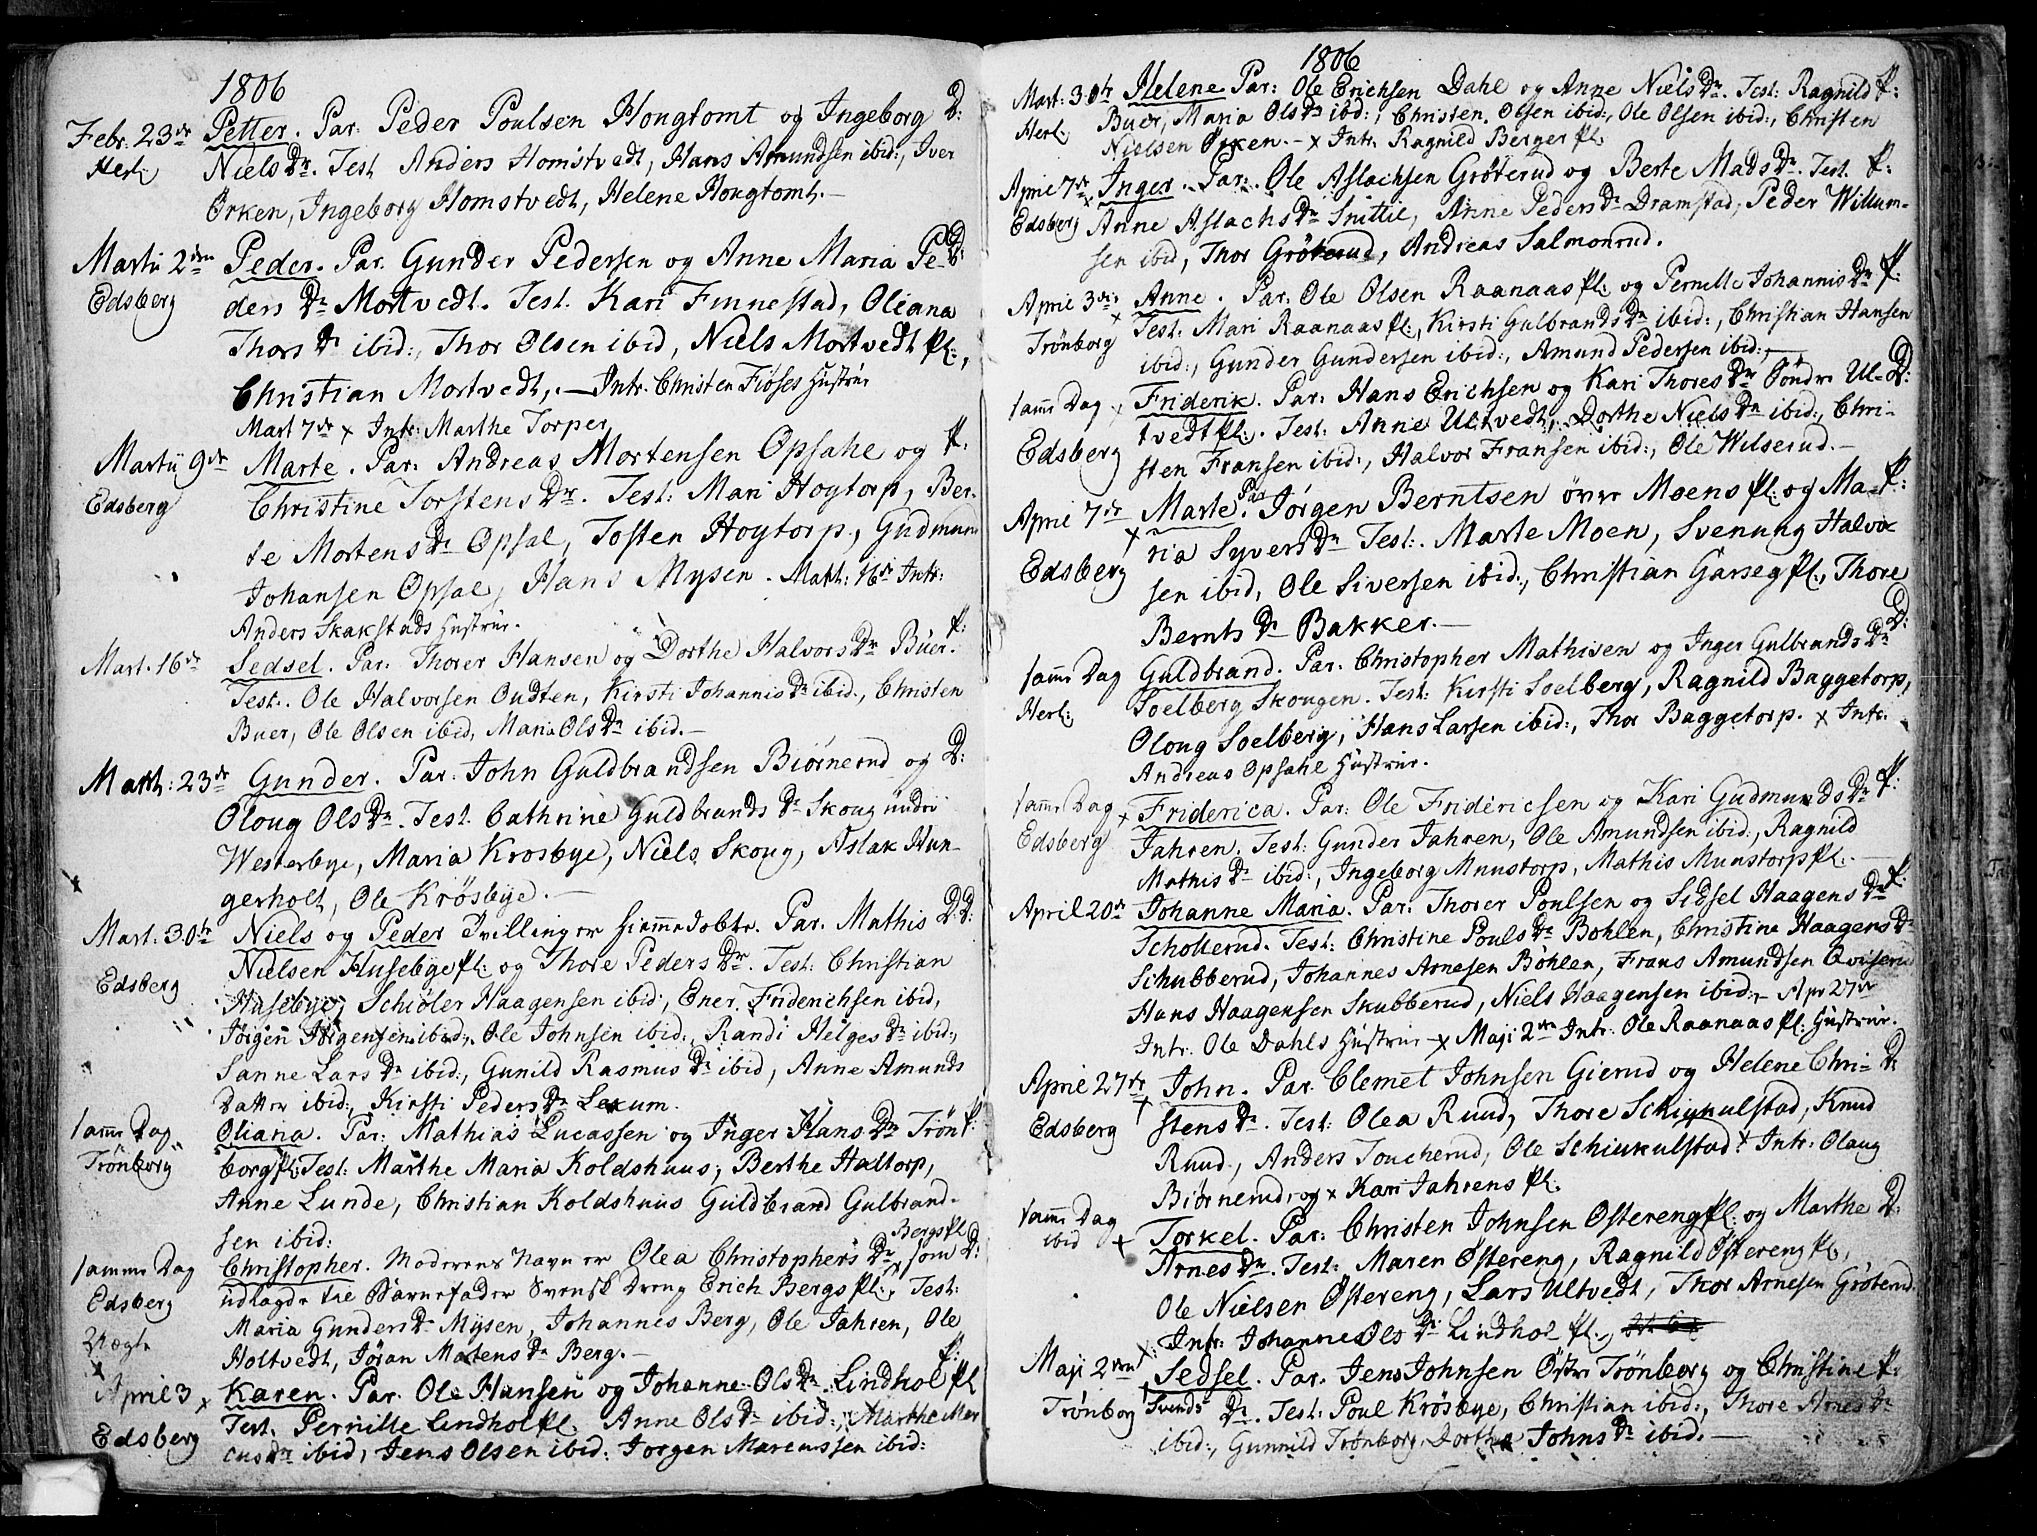 1806
Febr. 23de Petter. Par: Peder Poulsen Hougtomt og Ingeborg D:
Herl: Niels Dr. Test Anders Homstvedt, Hans Amundsen ibid:, Iver
Ørken, Ingeborg Homstvedt, Helene Hougtomt.—
Martii 2den Peder. Par. Gunder Pedersen og Anne Maria Pe- D:
Edsberg ders Dr Mortvedt. Test. Kari Finnestad, Oliana
Thors Dr ibid:, Thor Olsen ibid, Niels Mortvedt Pl:,
Christian Mortvedt,.— Intr. Christen Fiøses Hustrue
Mart 7de x Intr: Marthe Torper
Martii 9de Marte. Par. Andreas Mortensen Opsahl og P:
Edsberg Christine Torstens Dr. Test: Mari Hoytorp, Ber-
te Mortens Dr Opsal, Tosten Hoytorp, Gudmund
Johansen Opsal, Hans Mysen. Mart: 16de Intr:
Anders Skakstads Hustrue.
Mart. 16de Sedsel. Par. Thorer Hansen og Dorthe Halvors Dr Buer. P:
Test. Ole Halvorsen Oudten, Kirsti Johannis Dr ibid., Christen
Buer, Ole Olsen ibid, Maria Ols Dr ibid.—
Marth: 23de Gunder. Par. John Guldbrandsen Biørnerud og D:
Oloug Ols Dr. Test. Cathrine Guldbrands Dr Skoug undri
Westerbye, Maria Krosbye, Niels Skoug, Aslak Hun-
gerholt, Ole Krösbye.—
Mart. 30te Niels og Peder Tvillinger hiemmedøbte. Par. Mathis D.D:
Edsberg Nielsen Husebye Pl: og Thore Peders Dr. Test: Christian
Husebye, Schiøler Haagensen ibid:, Ener Friderichsen ibid,
Jørgen Jørgensen ibid:, Ole Johnsen ibid:, Randi Helges Dr ibid:,
Sanne Lars Dr ibid:, Gunild Rasmus Dr ibid, Anne Amunds
Datter ibid:, Kirsti Peders Dr Lekum.
samme Dag Oliana. Par: Mathias Lucassen og Inger Hans Dr Trön P:
Trönborg borg Pl: Test: Marthe Maria Koldshuus, Berthe Haltorp,
Anne Lunde, Christian Koldshuus Guldbrand Gulbrand-
sen ibid:
Bergs Pl
samme Dag Christopher. Moderens Navn er Olea Christophers Dr, som D:
Edsberg udlagde til Barnefader Svensk Dreng Erich Bergs Pl:, Test:
Uægte Maria Gunders Dr Mysen, Johannes Berg, Ole Jahren, Ole
Holtvedt, Jøran Matens Dr Berg.—
April 3 x Karen. Par. Ole Hansen og Johanne Ols Dr. Lindhol Pl P:
Edsberg Test. Pernille Lindhol Pl. Anne Ols Dr ibid:, Marthe Mar
cus Dr ibid, Jens Olsen ibid: Jorgen Marcussen ibid:
1806
Mart: 30te Helene Par: Ole Erichsen Dahl og Anne Niels Dr. Test: Ragnild P:
Herl: Buer, Maria Ols Dr ibd:, Christen Olsen ibid:, Ole Olsen ibid:, Christen
Nielsen Ørken.— x Intr. Ragnild Berger Pl.
April 7de x Inger. Par. Ole Aslachsen Grøterud og Berte Mads Dr. Test. P:
Edsberg Anne Aslachs Dr Snittil, Anne Peders Dr Dramstad, Peder Willum-
sen ibid, Thor Gröterud, Andreas Salmonrud.
April 3de x Anne. Par. Ole Olsen Raanaas Pl: og Pernille Johannis Dr P:
Trönborg Test: Mari Raanaas Pl., Kirsti Gulbrands Dr ibid:, Christian Hansen
ibid:, Gunder Gundersen ibid:, Amund Pedersen ibid:,—
samme Dag x Friderik. Par: Hans Erichsen og Kari Thores Dr Söndre Ul- D:
Edsberg tvedt Pl:. Test: Anne Ultvedt, Dorthe Niels Dr ibid:, Chri-
sten Fransen ibid:, Halvor Fransen ibid:, Ole Wilserud.—
April 7de x Marte. Par Jørgen Berntsen öwer Moens Pl: og Ma- P:
Edsberg ria Syvers Dr Test:. Marte Moen, Svenung Halvor
sen ibid, Ole Siversen ibid:, Christian Garseg Pl., Thore
Bernts Dr Bakker.—
samme Dag Guldbrand. Par. Christopher Mathisen og Inger Gulbrands Dr D:
Herl: Soelberg Skougen. Test: Kirsti Soelberg, Ragnild Baggetorp,
Oloug Soelberg, Hans Larsen ibid:, Thor Baggetorp. x Intr.
Andreas Opsahl Hustrue.
samme Dag x Friderica. Par: Ole Fridericsen og Kari Gudmunds Dr P:
Edsberg Jahren. Test: Gunder Jahren, Ole Amundsen ibid:, Ragnild
Mathis Dr ibid:, Ingeborg Muustorp, Mathis Munstorp Pl:.—
April 20de Johanne Maria. Par: Thorer Poulsen og Sidsel Haagens Dr P:
Schollerud. Test: Christine Pouls Dr Bohlen, Christine Haagens Dr
Schubberud, Johannes Arnesen Bøhlen, Frans Amundsen Qviserud
Hans Haagensen Skubberud, Niels Haagensen ibid:— Apr 27de
Intr. Ole Dahls Hustrue — x Maji 2den Intr: Ole Raanaas Pl: Hustrue.
April 27de x John. Par. Clemet Johnsen Gierud og Helene Chri- D:
Edsberg stens Dr. Test: Olea Ruud, Thore Schiukulstad, Knud
Ruud., Anders Toucherud, Ole Schiukulstad x Intr: Olaug
Biørnerud, og x Kari Jahrens Pl.
samme Dag x Torkel. Par: Christen Johnsen Ostereng Pl: og Marthe D:
ibid Arnes Dr. Test: Maren Østereng, Ragnild Østereng Pl.,
Ole Nielsen Østereng, Lars Ultvedt, Thor Arnesen Gröterud.
x: Intr: Johanne Ols Dr Lindhol Pl:,
Maji 2den Sedsel. Par. Jens Johnsen Östr Trönborg og Christine P:
Trönborg Svends Dr. Test: Poul Krösbye, Christian ibid:, Thore Arnes Dr
ibid:, Gunnild Trönborg, Dorthe Johns Dr ibid.—